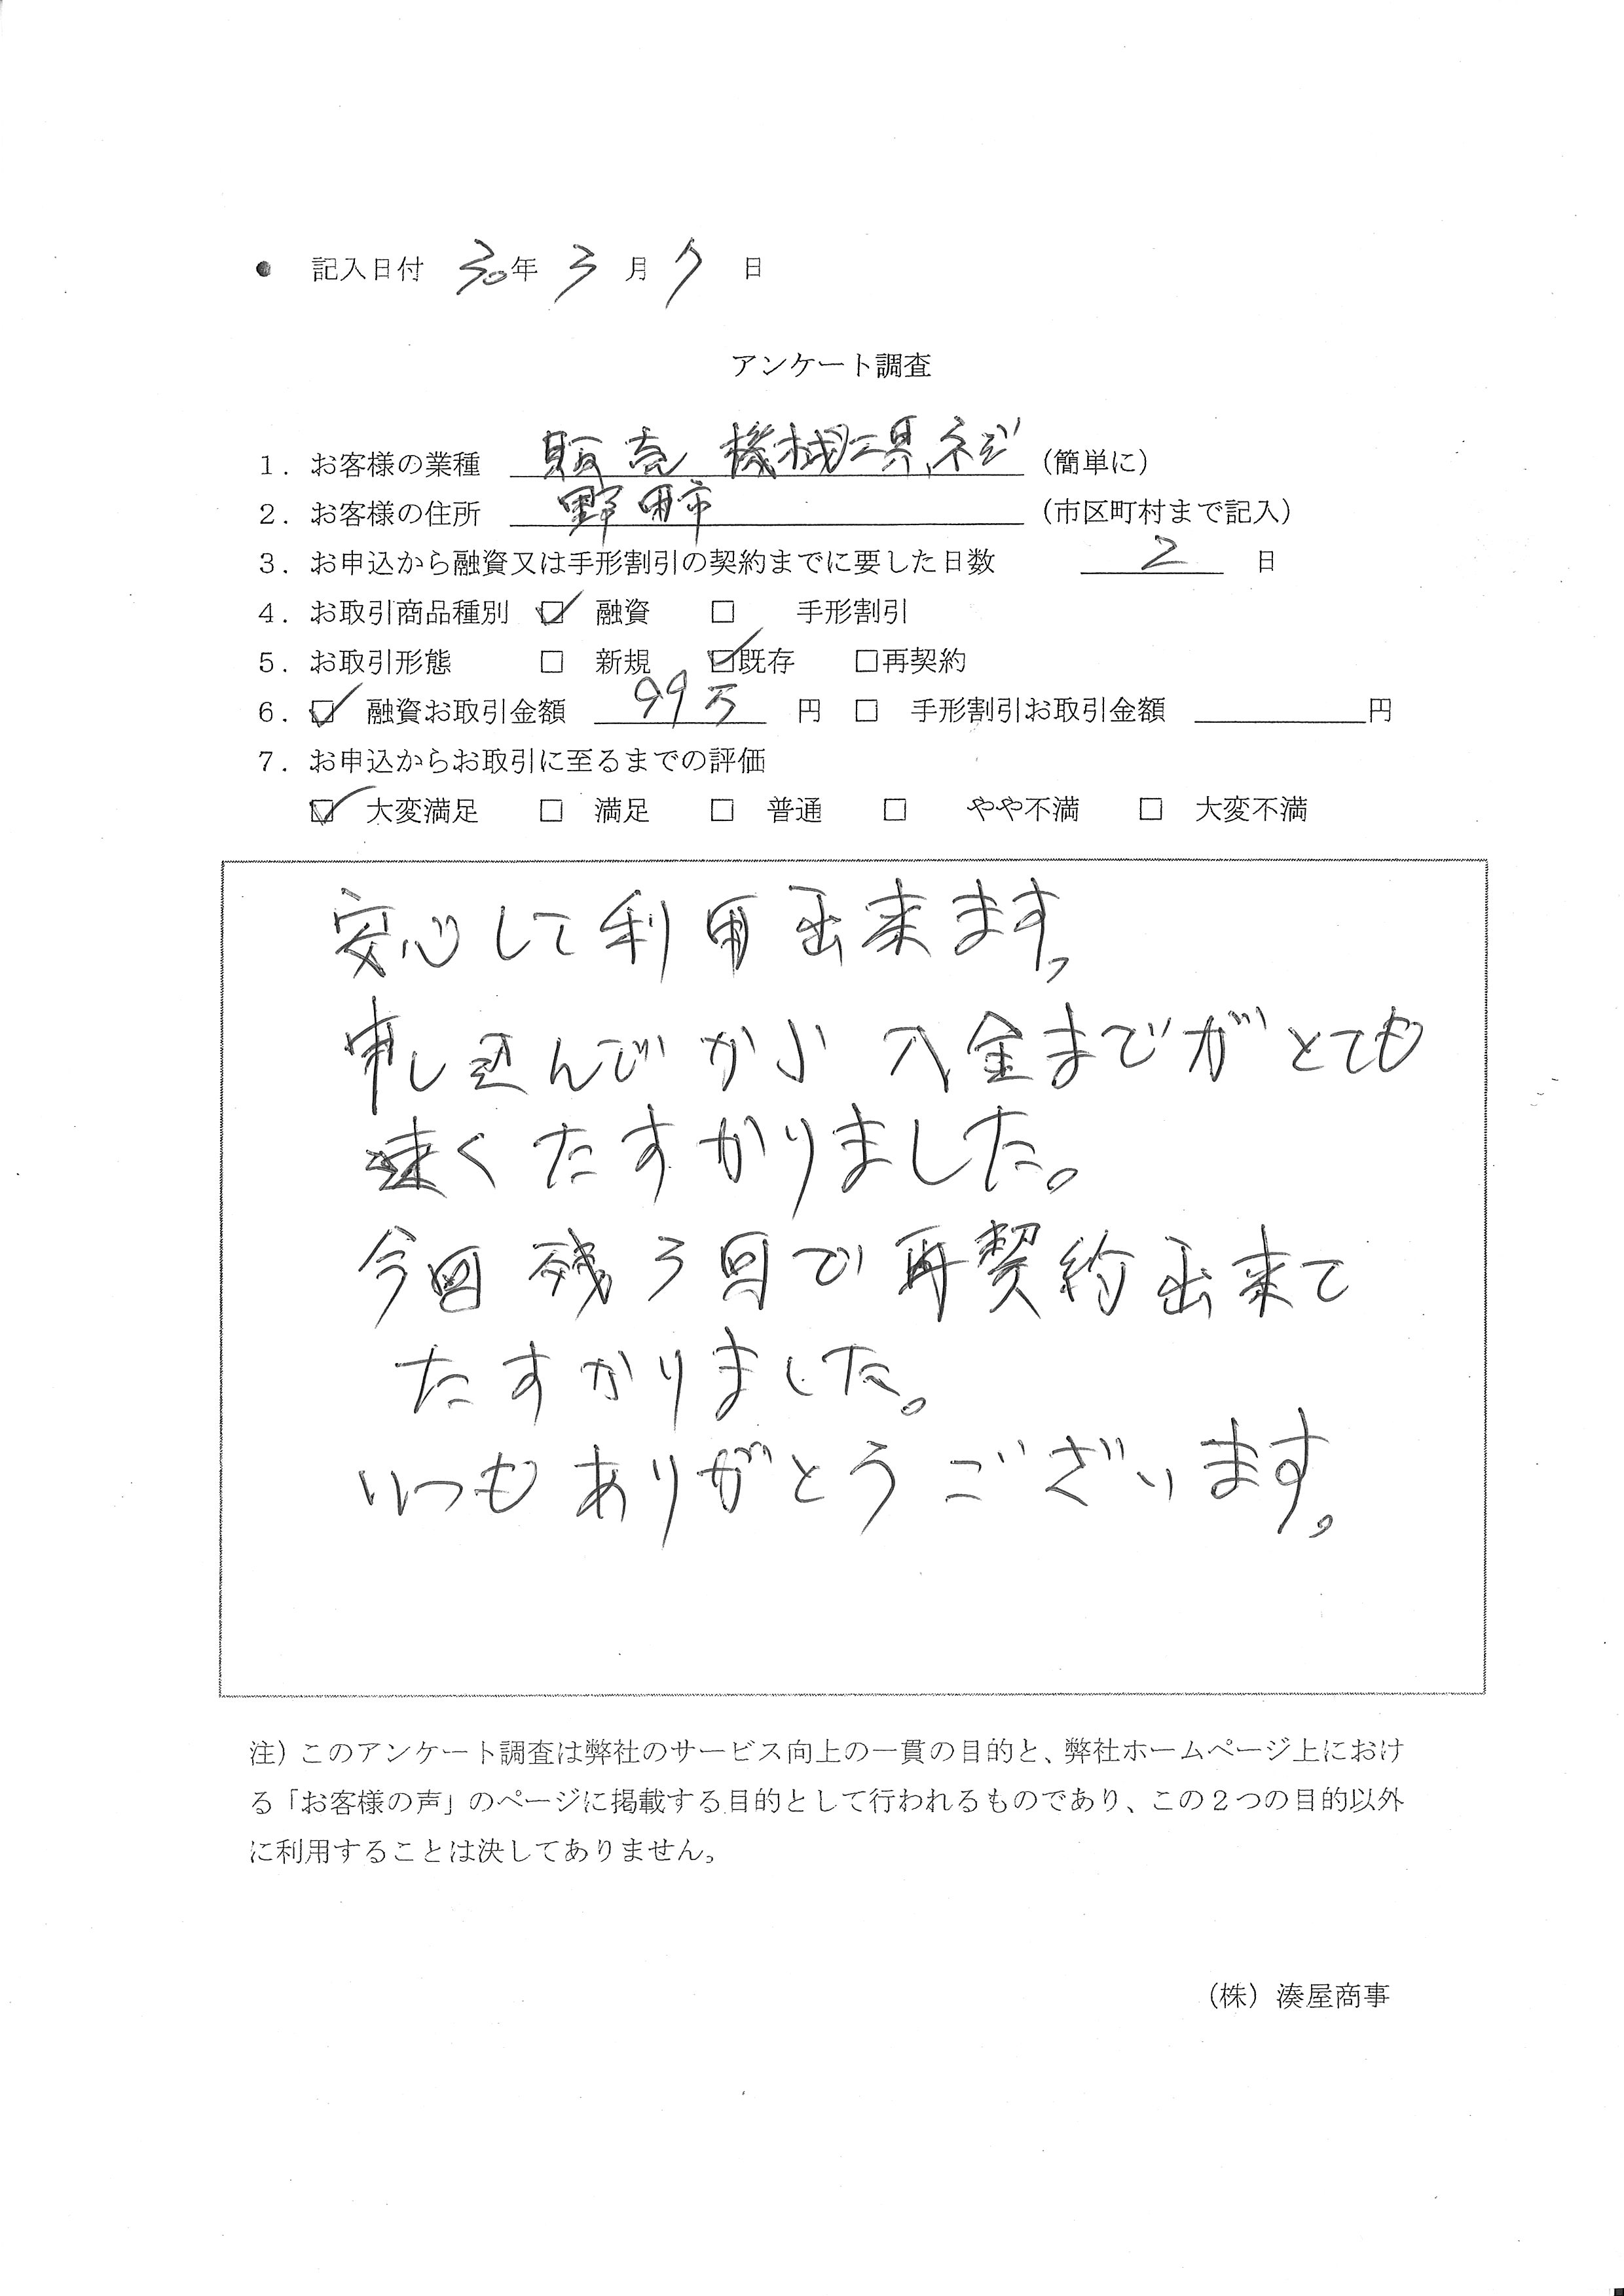 ● 記入日付 30年 3月 7日
アンケート調査
1. お客様の業種 販売 機械工具、ネジ (簡単に)
2. お客様の住所 野田市 (市区町村まで記入)
3. お申込から融資又は手形割引の契約までに要した日数 2 日
4. お取引商品種別 ☑ 融資 □ 手形割引
5. お取引形態 □ 新規 ☑既存 □再契約
6. ☑ 融資お取引金額 99万 円 □ 手形割引お取引金額 円
7. お申込からお取引に至るまでの評価
☑ 大変満足 □ 満足 □ 普通 □ やや不満 □ 大変不満
安心して利用出来ます、
申し込んでから入金までがとても
速くたすかりました。
今回残3回で再契約出来て
たすかりました。
いつもありがとうございます。
注)このアンケート調査は弊社のサービス向上の一貫の目的と、弊社ホームページ上におけ
る「お客様の声」のページに掲載する目的として行われるものであり、この2つの目的以外
に利用することは決してありません。
(株)湊屋商事